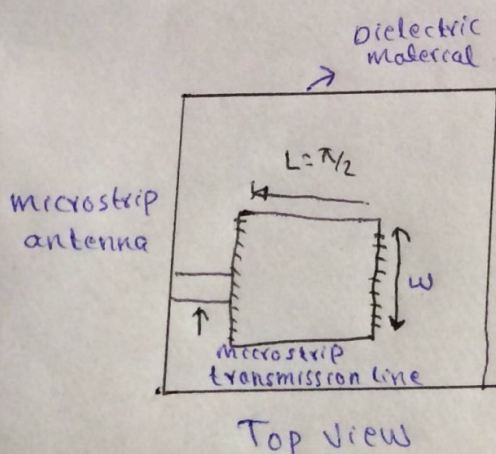 Dielectric
material
L = π/2
microstrip
antenna
W
Microstrip
transmission line
Top View